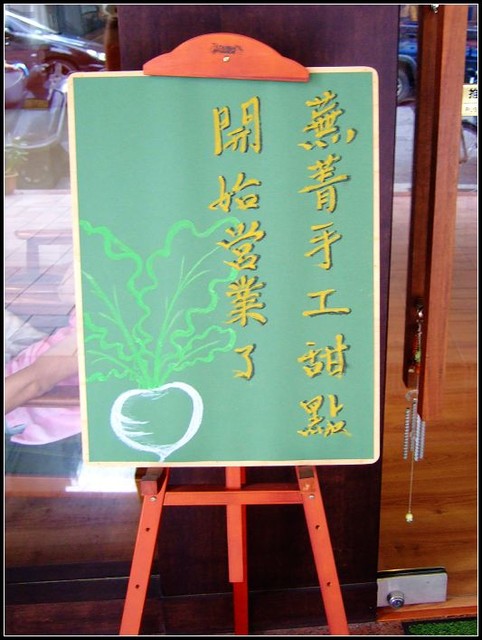 蕪菁手工甜點
開始營業了